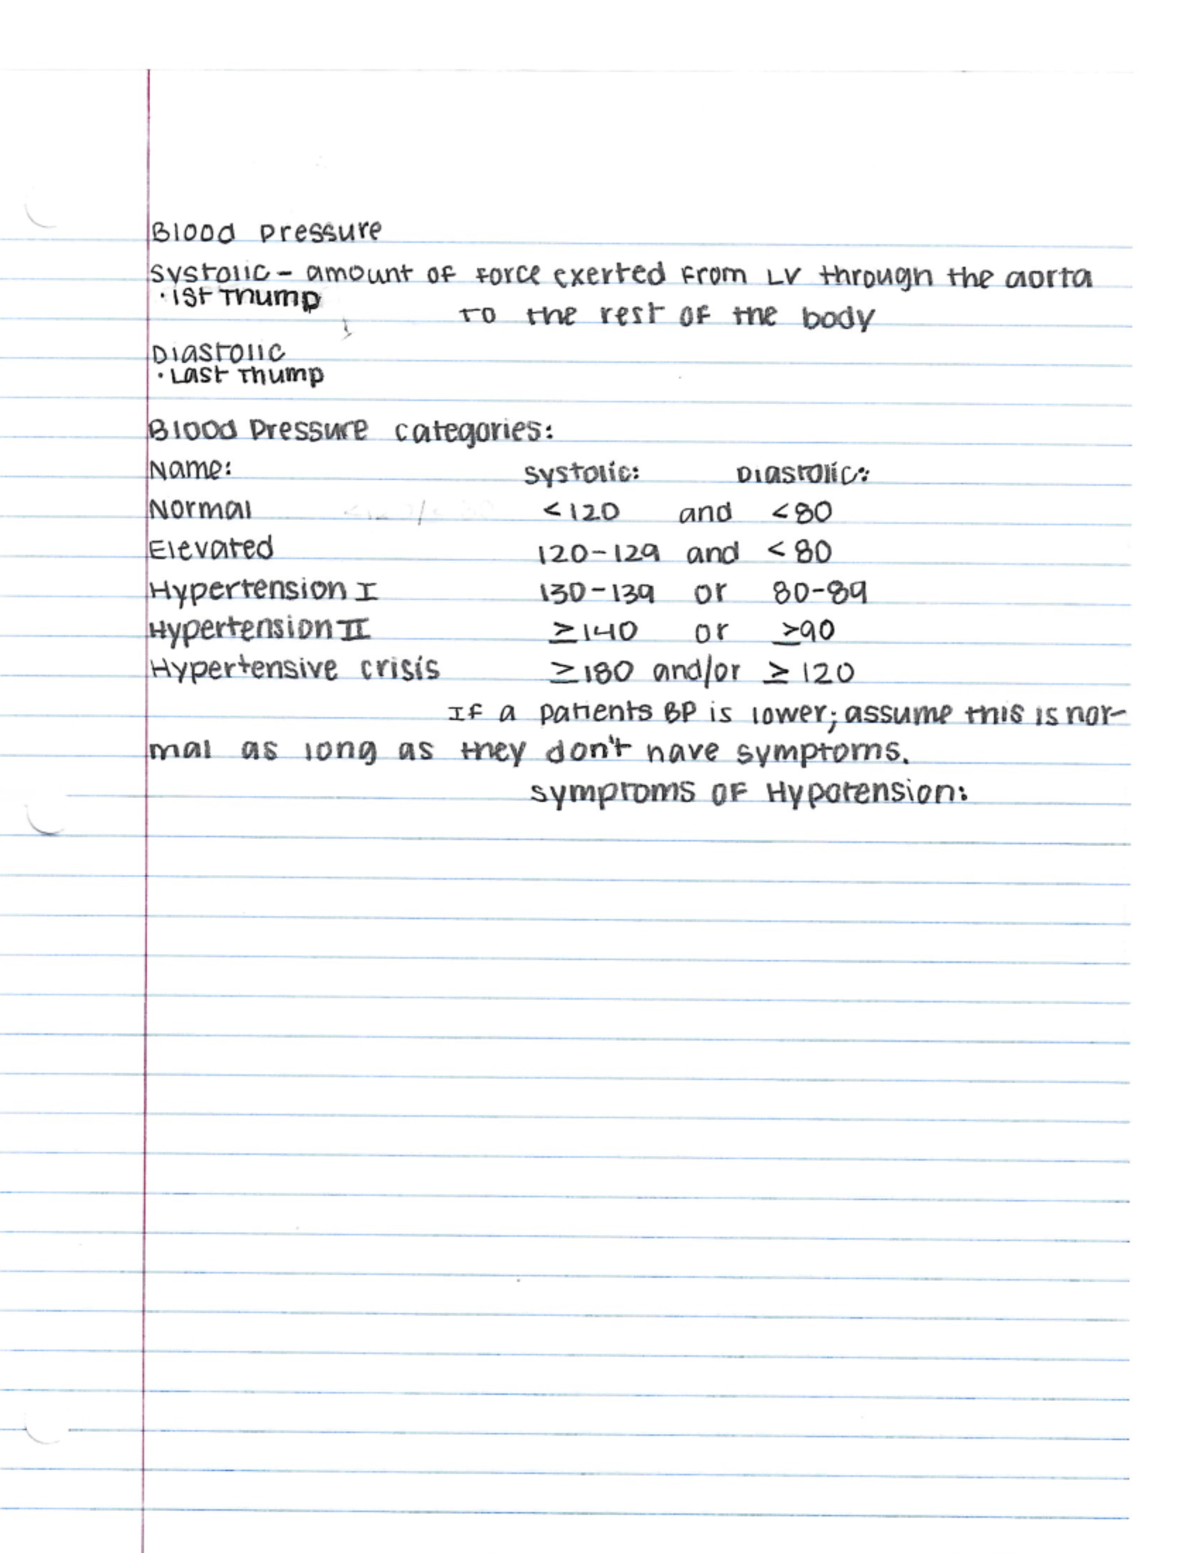 Blood Pressure
Systolic - amount of force exerted from LV through the aorta
• 1st Thump
to the rest of the body
Diastolic
• Last Thump
Blood Pressure categories:
Name: Systolic: Diastolic:
Normal <120 and <80
Elevated 120-129 and <80
Hypertension I 130-139 or 80-89
Hypertension II ≥140 or ≥90
Hypertensive crisis ≥180 and/or ≥120
If a patients BP is lower; assume this is nor-
mal as long as they don't have symptoms.
Symptoms of Hypotension: